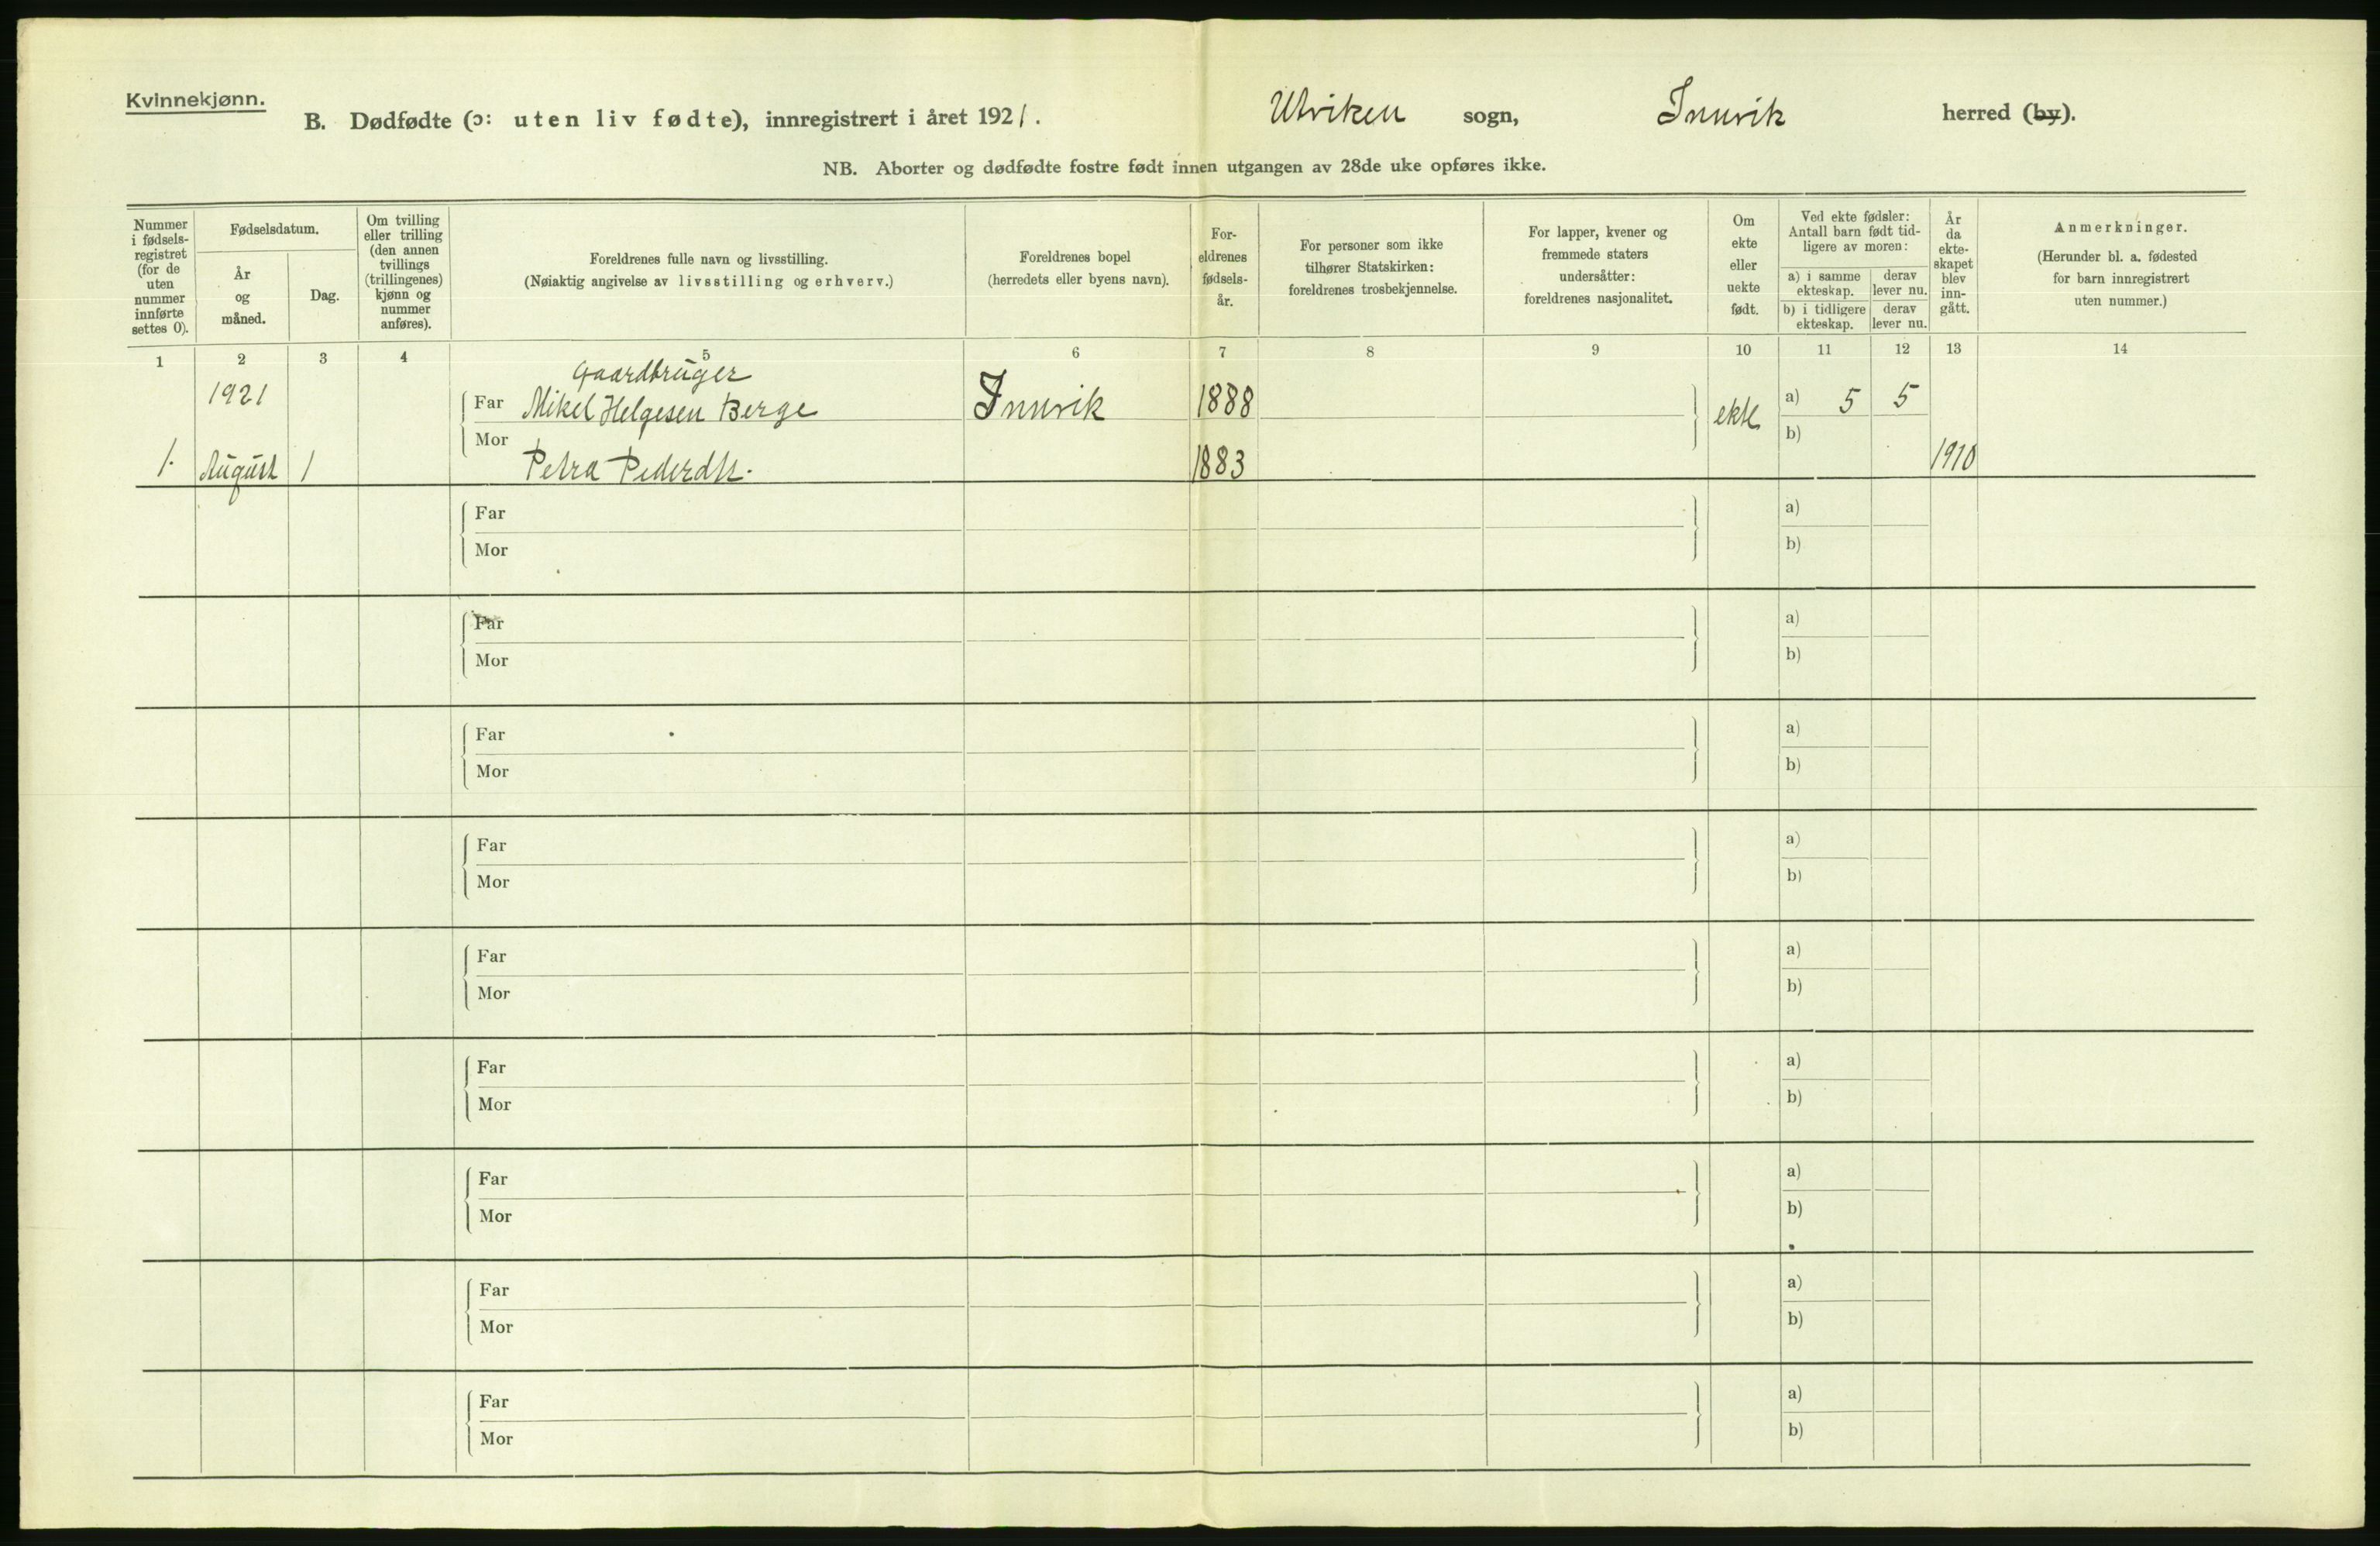 Kvinnekjønn.
B. Dødfødte (ɔ: uten liv fødte), innregistrert i året 1921. Utviken sogn, Innvik herred (by).
NB. Aborter og dødfødte fostre født innen utgangen av 28de uke opføres ikke.
Nummer i fødsels- registret (for de uten nummer innførte settes 0).
Fødselsdatum.
År og måned.
Dag.
Om tvilling eller trilling (den annen tvillings (trillingenes) kjønn og nummer anføres).
Foreldrenes fulle navn og livsstilling.
(Nøiaktig angivelse av livsstilling og erhverv.)
Foreldrenes bopel
(herredets eller byens navn).
For- eldrenes fødsels- år.
For personer som ikke tilhører Statskirken: foreldrenes trosbekjennelse.
For lapper, kvener og fremmede staters undersåtter: foreldrenes nasjonalitet.
Om ekte eller uekte født.
Ved ekte fødsler: Antall barn født tid- ligere av moren:
a) i samme ekteskap. derav lever nu.
b) i tidligere ekteskap. derav lever nu.
År da ekte- skapet blev inn- gått.
Anmerkninger.
(Herunder bl. a. fødested for barn innregistrert uten nummer.)
1 2 3 4 5 6 7 8 9 10 11 12 13 14
Gaardbruger
1921 Far Mikel Helgesen Berge Innvik 1888 ekte a) 5 5
Mor b)
1. August 1 Petra Pedersdtr. 1883 1910
Far a)
Mor b)
Far a)
Mor b)
Far a)
Mor b)
Far a)
Mor b)
Far a)
Mor b)
Far a)
Mor b)
Far a)
Mor b)
Far a)
Mor b)
Far a)
Mor b)